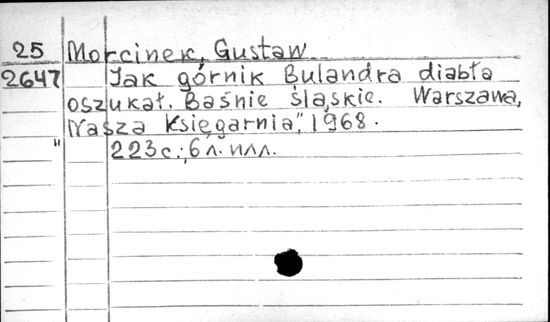 25 Morcinek, Gustaw
2647 Jak górnik Bulandra diabła
oszukał. Baśnie śląskie. Warszawa,
"Nasza Księgarnia", 1968.
223с.; 6 л. илл.